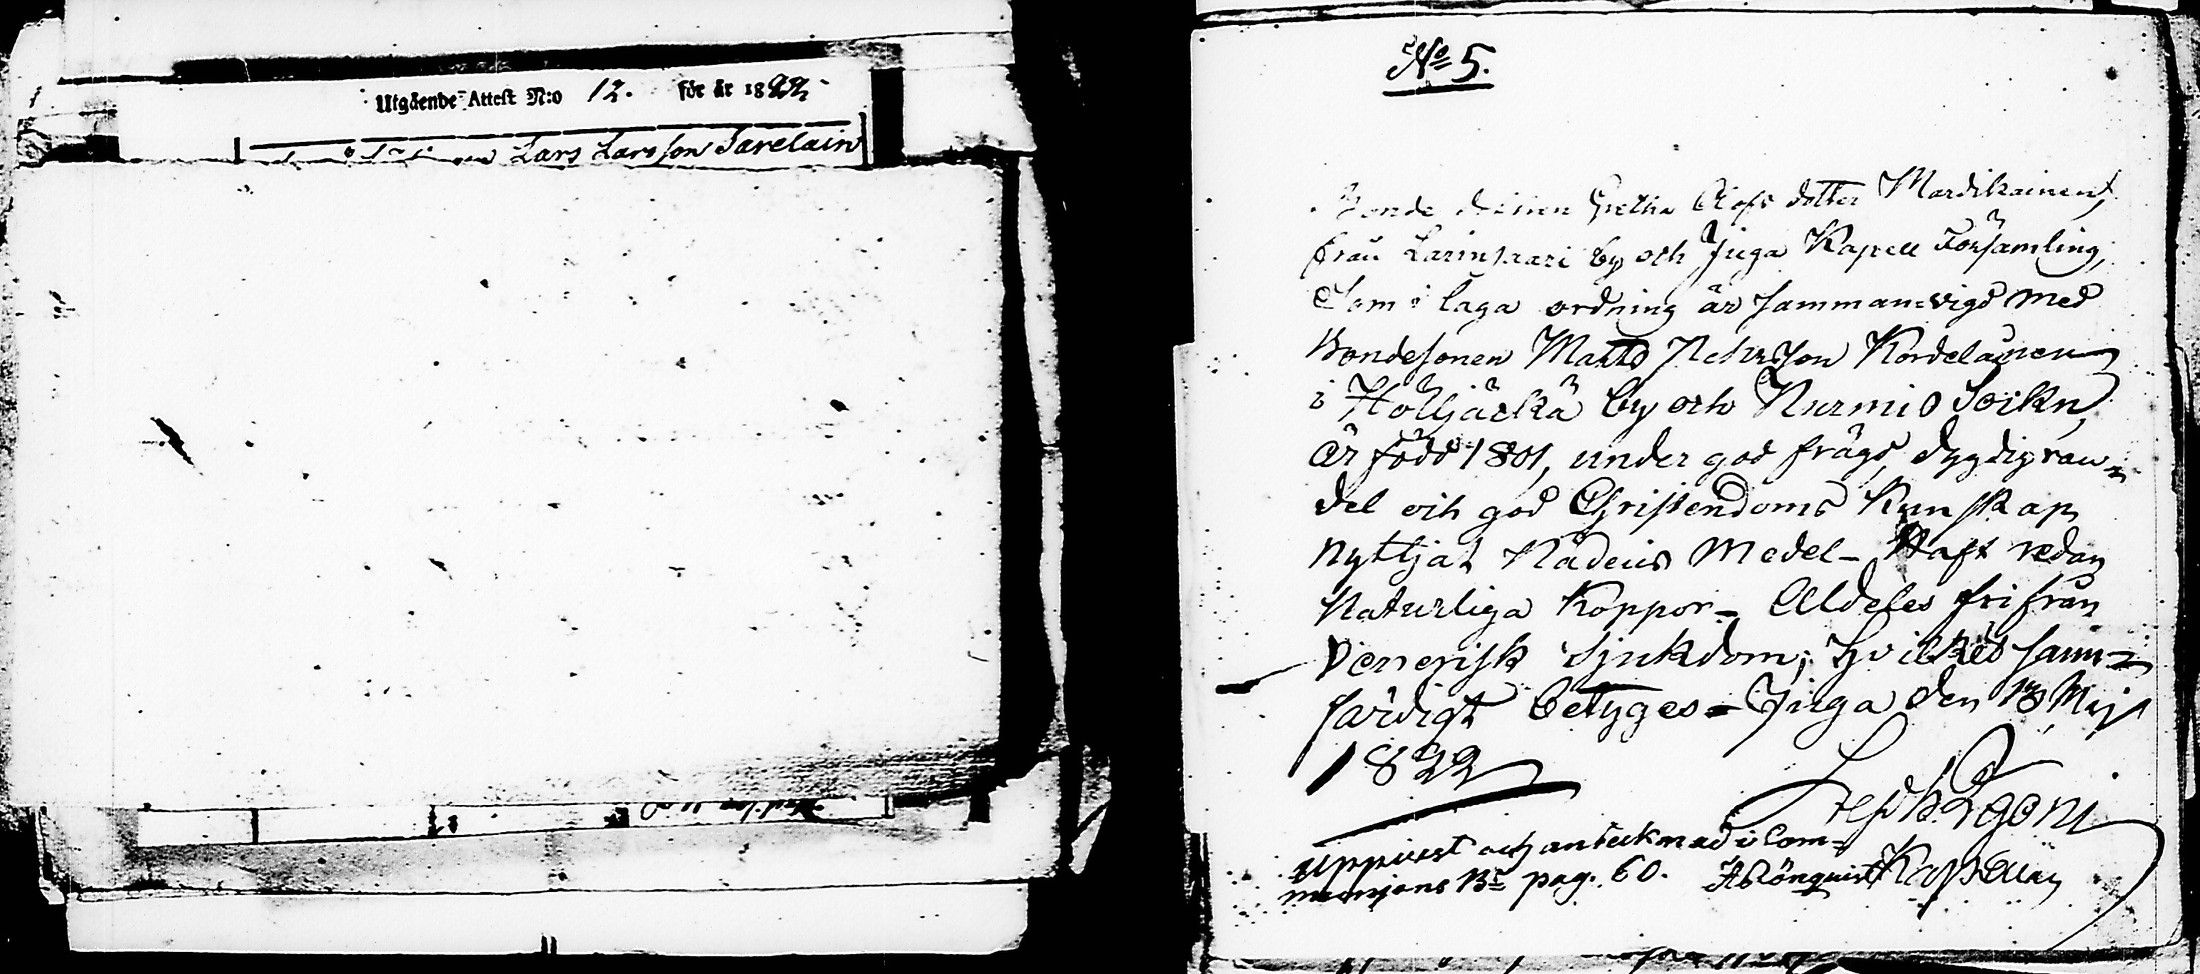 Utgående Attest N:o 12. för år 1822.
Lars Larsson Sarelain
No 5.
Bonde Gretha Olofs dotter Mardikainen,
från Larinsaari by och Juga Kapell Församling,
Som i laga ordning är samman=vigd med
Bondesonen Matts Kordelainen
i Höljäckä by och Nurmis Sockn,
är född 1801, under god frägd, dygdig van=
del och god Christendoms Kunskap
Nyttjat Nådens Medel - Haft redan
Naturliga Koppor - Aldeles fri från
Venerisk Sjukdom; Hvilket sann=
färdigt betyges - Juga den 13 Maji
1822
Uppvist och antecknad i Com=
munions Bn pag. 60.
Kapellan